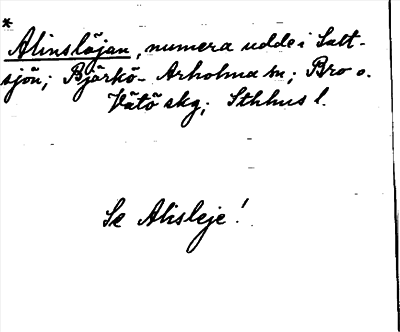 *
Alinsläjan, numera udde i Salt-
sjön; Björkö-Arholma sn; Bro o.
Vätö skg; Sthlms l.
Se Alisleje!